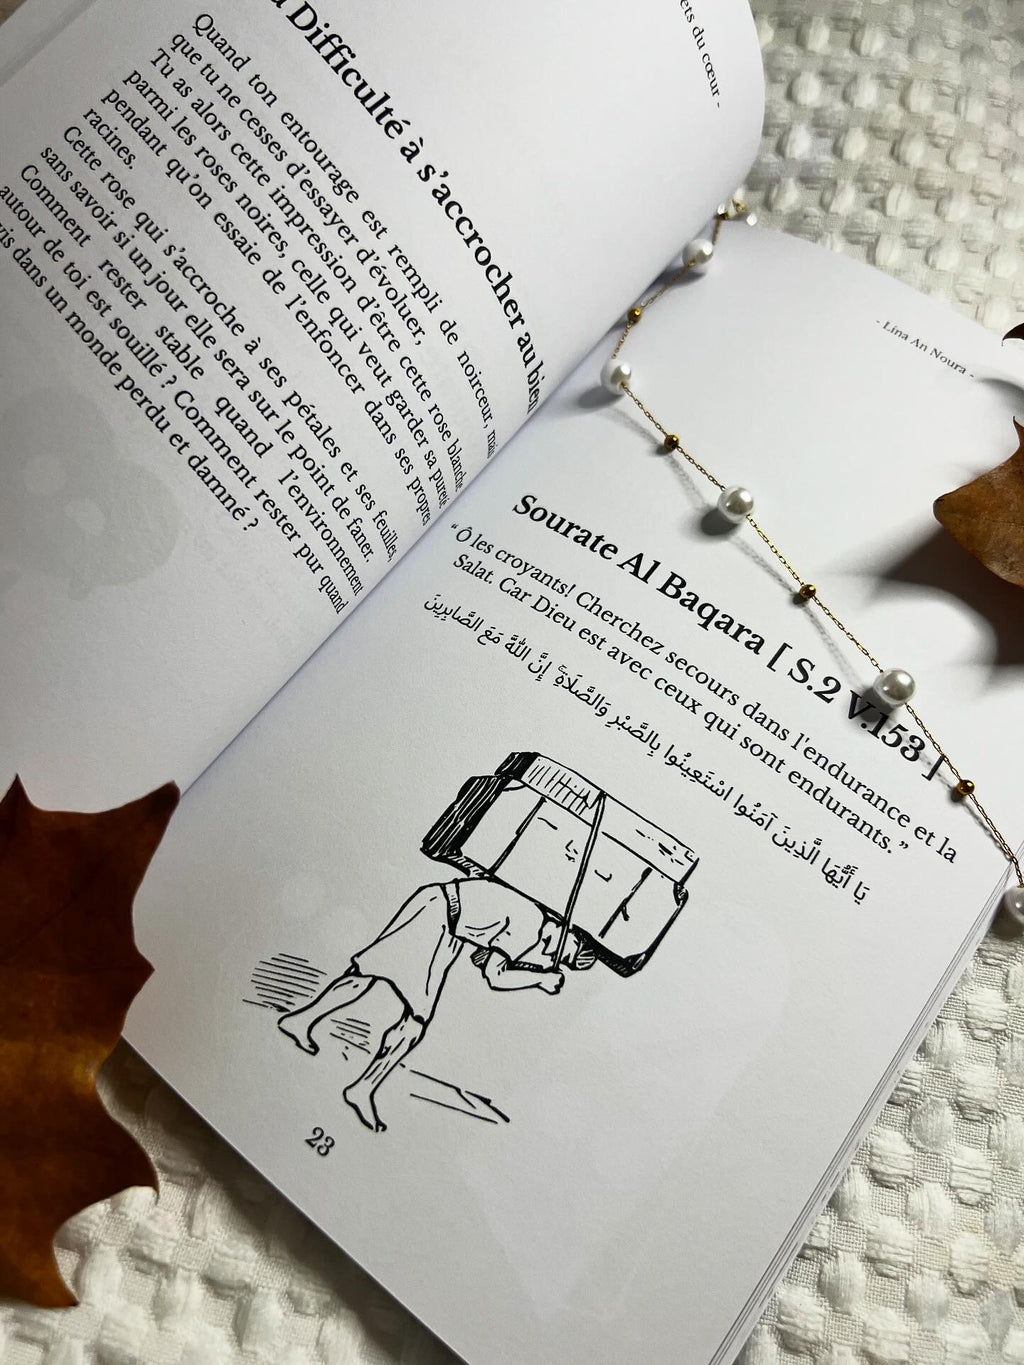 ets du cœur -
Difficulté à s'accrocher au bien
Quand ton entourage est rempli de noirceur,
que tu ne cesses d'essayer d'évoluer,
Tu as alors cette impression d'être cette rose blanche
parmi les roses noires, celle qui veut garder sa pureté
pendant qu'on essaie de l'enfoncer dans ses propres
racines.
Cette rose qui s'accroche à ses pétales et ses feuilles,
sans savoir si un jour elle sera sur le point de faner.
Comment rester stable quand l'environnement
autour de toi est souillé ? Comment rester pur quand
vis dans un monde perdu et damné ?
- Lina An Noura -
Sourate Al Baqara [ S.2 V.153 ]
“ Ô les croyants! Cherchez secours dans l'endurance et la
Salat. Car Dieu est avec ceux qui sont endurants.”
يَا أَيُّهَا الَّذِينَ آمَنُوا اسْتَعِينُوا بِالصَّبْرِ وَالصَّلَاةِ ۚ إِنَّ اللَّهَ مَعَ الصَّابِرِينَ
23